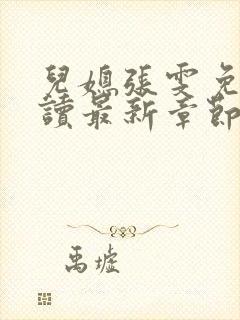 兒媳張雯免
讀最新章節
禹墟